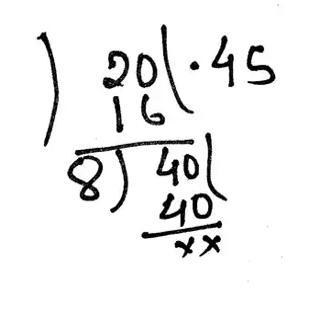 ) 20 ( .45
16
8 ) 40 (
40
xx